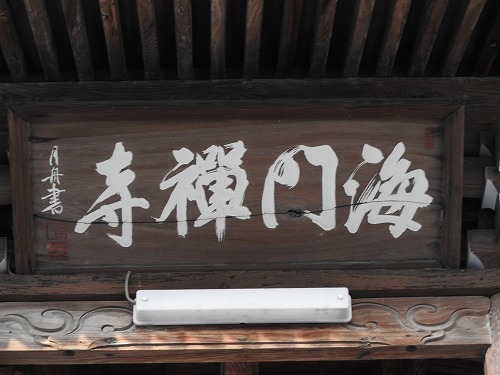 海門禪寺
月舟書